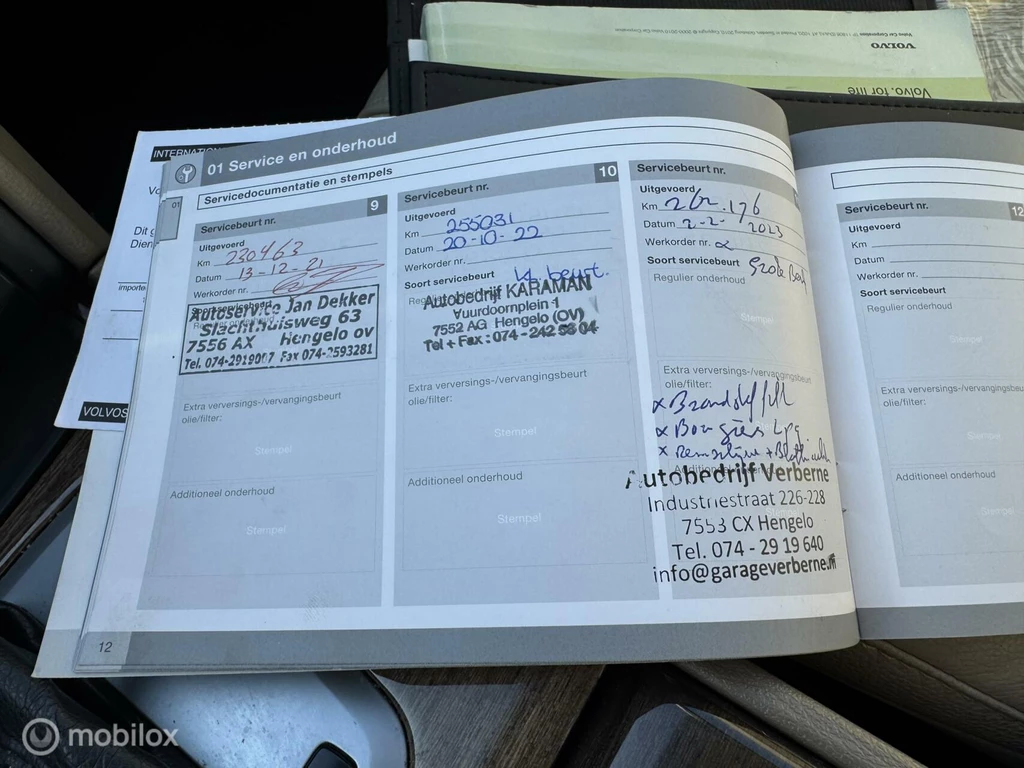 VOLVO
Volvo. for life
INTERNATION
01 Service en onderhoud
Servicedocumentatie en stempels
01
Servicebeurt nr. 9
Uitgevoerd
Km 230463
Datum 13-12-21
Werkorder nr.
Autoservice Jan Dekker
Slachthuisweg 63
7556 AX Hengelo ov
Tel. 074-2919007 Fax 074-2593281
Extra verversings-/vervangingsbeurt
olie/filter:
Stempel
Additioneel onderhoud
Stempel
Servicebeurt nr. 10
Uitgevoerd
Km 255031
Datum 20-10-22
Werkorder nr.
Soort servicebeurt kl. beurt.
Autobedrijf KARAMAN
Vuurdoornplein 1
7552 AG Hengelo (OV)
Tel + Fax : 074 - 242 58 04
Extra verversings-/vervangingsbeurt
olie/filter:
Stempel
Additioneel onderhoud
Stempel
Servicebeurt nr.
Uitgevoerd
Km 262.176
Datum 2-2-2023
Werkorder nr.
Soort servicebeurt Grote Beurt
Regulier onderhoud
Stempel
Extra verversings-/vervangingsbeurt
olie/filter:
x Brandstoffilt
x Bougies Lpg
Autobedrijf Verberne
Industriestraat 226-228
7553 CX Hengelo
Tel. 074 - 29 19 640
info@garageverberne.nl
Servicebeurt nr. 12
Uitgevoerd
Km
Datum
Werkorder nr.
Soort servicebeurt
Regulier onderhoud
Stempel
Extra verversings-/verv
olie/filter:
Stempel
Additioneel onderhoud
Stempe
Vo
Dit g
Dien
importe
VOLVOS
12
mobilox